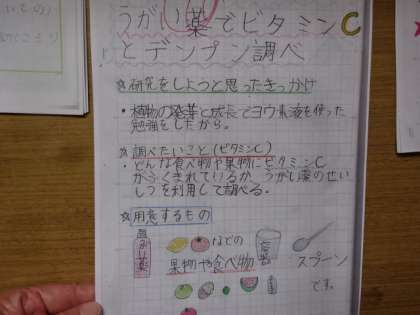 うがい薬でビタミンC
とデンプン調べ
☆研究をしようと思ったきっかけ
・植物の発芽と成長でヨウ素液を使った
勉強をしたから。
☆調べたいこと(ビタミンC)
・どんな食べ物や果物にビタミンC
がふくまれているか、うがい薬のせい
しつを利用して調べる。
☆用意するもの
などの
果物や食べ物
スプーン
です。